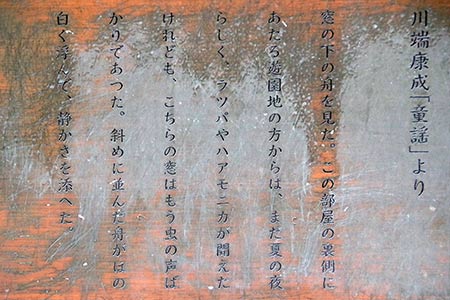 川端康成「童謡」より
窓の下の舟を見た。この部屋の裏側に
あたる遊園地の方からは、まだ夏の夜
らしく、ラツパやハアモニカが聞えた
けれども、こちらの窓はもう虫の声ば
かりであつた。斜めに並んだ舟がほの
白く浮んで、静かさを添へた。